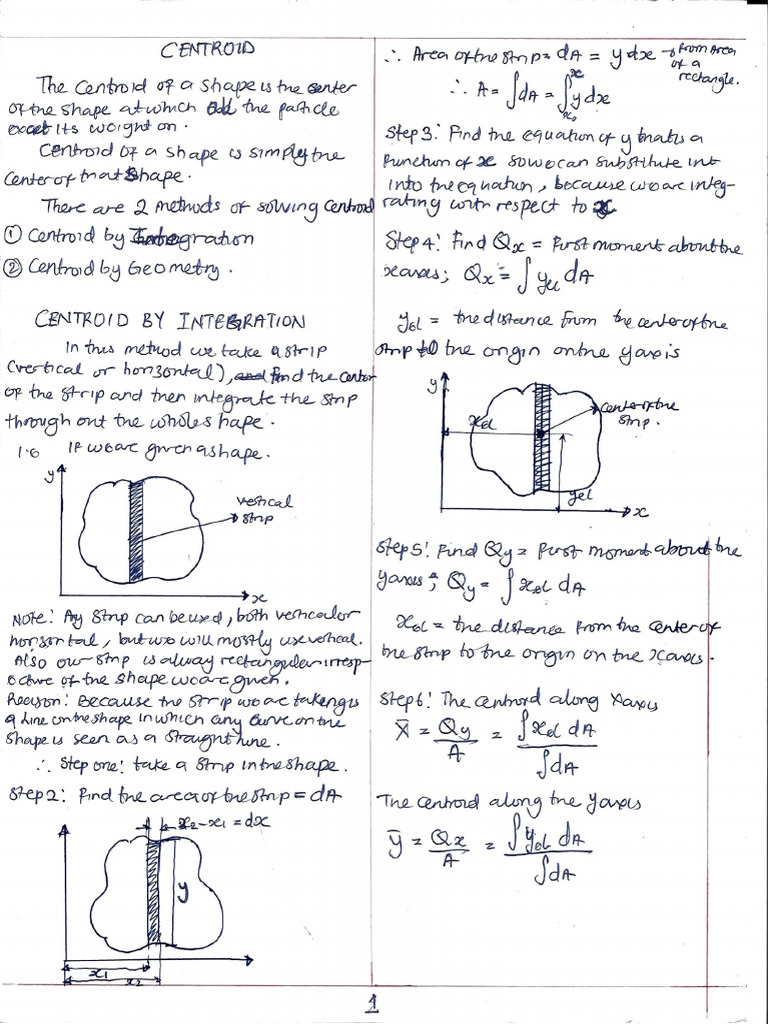 CENTROID
The Centroid of a shape is the center
of the shape at which all the particle
exact its weight on.
Centroid of a shape is simply the
Center of that shape.
There are 2 methods of solving Centroid
① Centroid by Integration
② Centroid by Geometry.
CENTROID BY INTEGRATION
In this method we take a strip
(vertical or horizontal), find the center
of the strip and then integrate the strip
through out the whole shape.
i.e If we are given a shape.
y
vertical
strip
x
Note: Any strip can be used, both vertical or
horizontal, but we will mostly use vertical.
Also our strip is alway rectangular irresp-
ective of the shape we are given.
Reason: Because the strip we are taking is
a line on the shape in which any curve on the
shape is seen as a straight line.
∴ Step one: take a strip in the shape.
Step 2: Find the area of the strip = dA
x₂-x₁ = dx
y
x₁
x₂
∴ Area of the strip = dA = y dx → from Area
of a
rectangle.
∴ A = ∫dA = ∫ₓ₀ˣ y dx
Step 3: Find the equation of y that is a
function of x so we can substitute int
into the equation, because we are integ-
rating with respect to x
Step 4: Find Qx = First moment about the
x axes; Qx = ∫ yel dA
yel = the distance from the center of the
strip to the origin on the y axis
y
xel
center of the
strip.
yel
x
Step 5: Find Qy = First moment about the
y axes; Qy = ∫ xel dA
xel = the distance from the center of
the strip to the origin on the x axes.
Step 6: The centroid along X axis
X̄ = Qy/A = ∫xel dA / ∫dA
The centroid along the y axis
ȳ = Qx/A = ∫yel dA / ∫dA
1